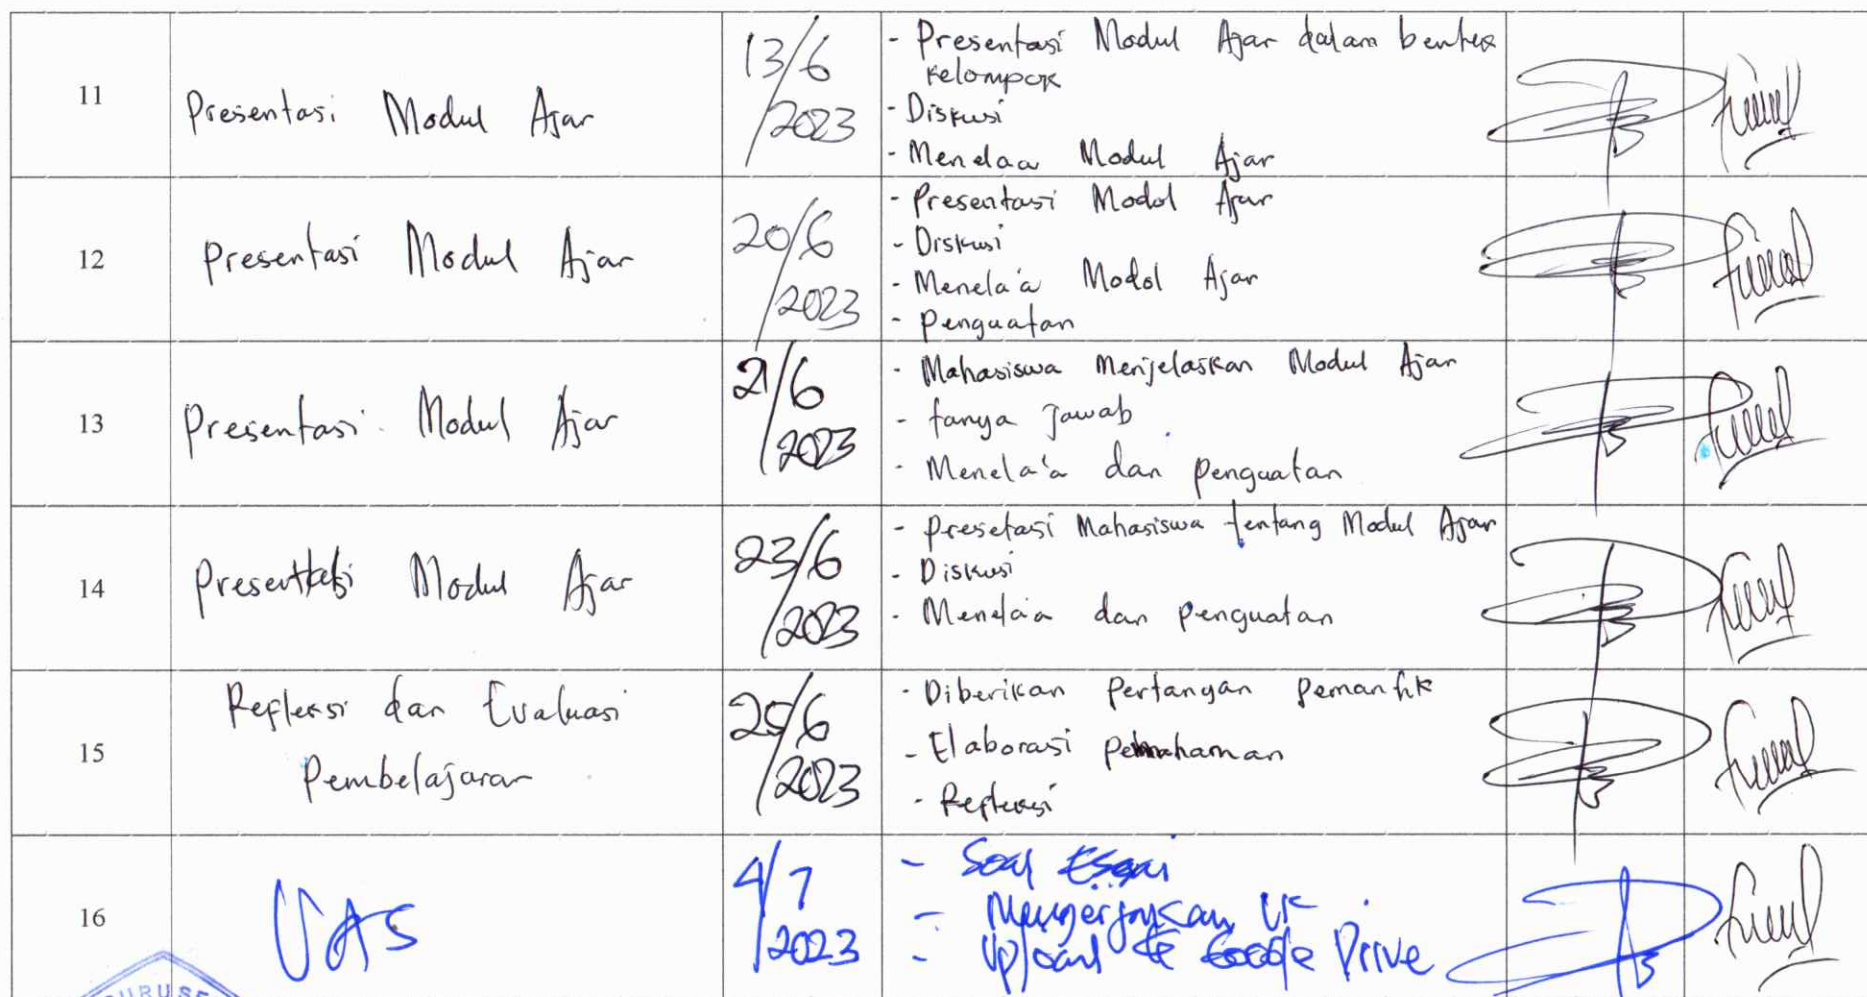 11
Presentasi Modul Ajar
13/6
2023
- Presentasi Modul Ajar dalam bentuk
kelompok
- Diskusi
- Menelaa Modul Ajar
12
Presentasi Modul Ajar
20/6
2023
- Presentasi Modul Ajar
- Diskusi
- Menela'a Modul Ajar
- Penguatan
13
Presentasi Modul Ajar
21/6
2023
- Mahasiswa Menjelaskan Modul Ajar
- tanya Jawab
- Menela'a dan penguatan
14
Presentasi Modul Ajar
23/6
2023
- Presetasi Mahasiswa tentang Modul Ajar
- Diskusi
- Menelaa dan penguatan
15
Refleksi dan Evaluasi
Pembelajaran
25/6
2023
- Diberikan Pertangan Pemantik
- Elaborasi Pemahaman
- Refleksi
16
UAS
4/7
2023
- Soal Essai
- Mengerjakan LK
- Upload ke Google Drive